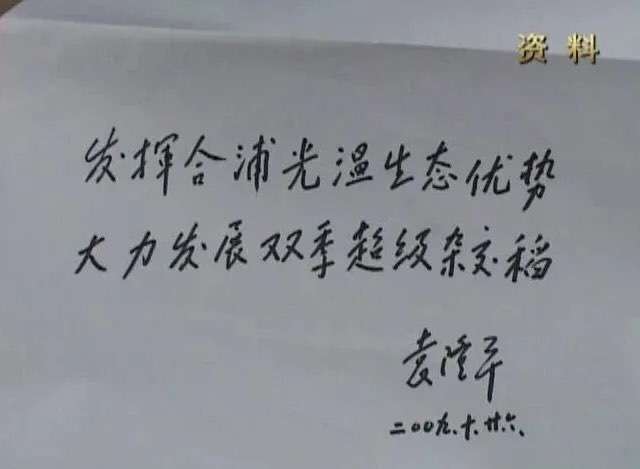 资料
发挥合浦光温生态优势
大力发展双季超级杂交稻
袁隆平
二00九.十.廿六.